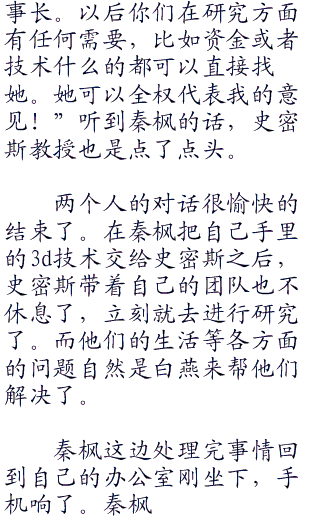 事长。以后你们在研究方面
有任何需要，比如资金或者
技术什么的都可以直接找
她。她可以全权代表我的意
见！”听到秦枫的话，史密
斯教授也是点了点头。
两个人的对话很愉快的
结束了。在秦枫把自己手里
的3d技术交给史密斯之后，
史密斯带着自己的团队也不
休息了，立刻就去进行研究
了。而他们的生活等各方面
的问题自然是白燕来帮他们
解决了。
秦枫这边处理完事情回
到自己的办公室刚坐下，手
机响了。秦枫